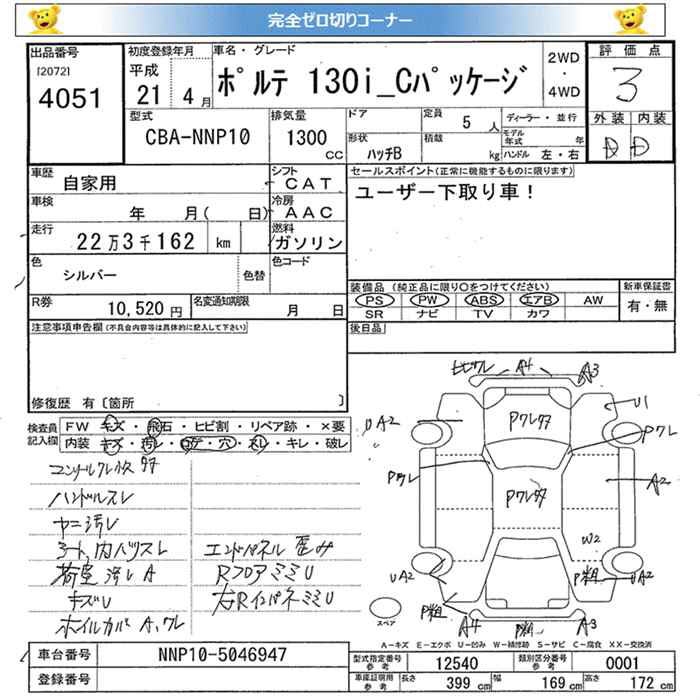 完全ゼロ切りコーナー
出品番号
[2072]
4051
初度登録年月
平成
21年 4月
車名・グレード
ポルテ 130i_Cパッケージ
2WD
・
4WD
評価点
3
外装 内装
D D
型式
CBA-NNP10
排気量
1300
CC
ドア
定員
5 人
ディーラー・並行
形状
ハッチB
積載
kg
モデル年式 年
ハンドル 左・右
車歴
自家用
シフト
CAT
車検
年 月( 日)
冷房
AAC
走行
22万3千162 km
燃料
ガソリン
色
シルバー
色替
色コード
R券
10,520 円
名変通知期限
月 日
セールスポイント(正常に機能するものに限ります)
ユーザー下取り車!
装備品 (純正品に限り○をつけてください)
PS PW ABS エアB AW
SR ナビ TV カワ
新車保証書
有・無
後日品
注意事項申告欄(不具合内容等は具体的に記入して下さい)
修復歴 有〔箇所 〕
検査員記入欄
FW キズ・飛石・ヒビ割・リペア跡・×要
内装 キズ・汚れ・コゲ・穴・スレ・キレ・破レ
ハンドルスレ
ヤニ汚レ
シート,内ハリスレ
荷室汚レA
キズU
ホイルカバA,ワレ
エンドパネル歪み
RフロアミミU
右RインパネミミU
ヒビワレ A4 A3
U1
UA2
Pワレタタ
Pワレ
Pワレ
A2
Pワレタタ
W2
UA2
P粗
UA2
P粗
A4
P粗
A3
スペア
A-キズ E-エクボ U-凹み W-補修跡 S-サビ C-腐食 XX-交換済
車台番号
NNP10-5046947
登録番号
型式指定番号 参考
12540
類別区分番号 参考
0001
車庫証明用 参考
長さ 399 cm
幅 169 cm
高さ 172 cm